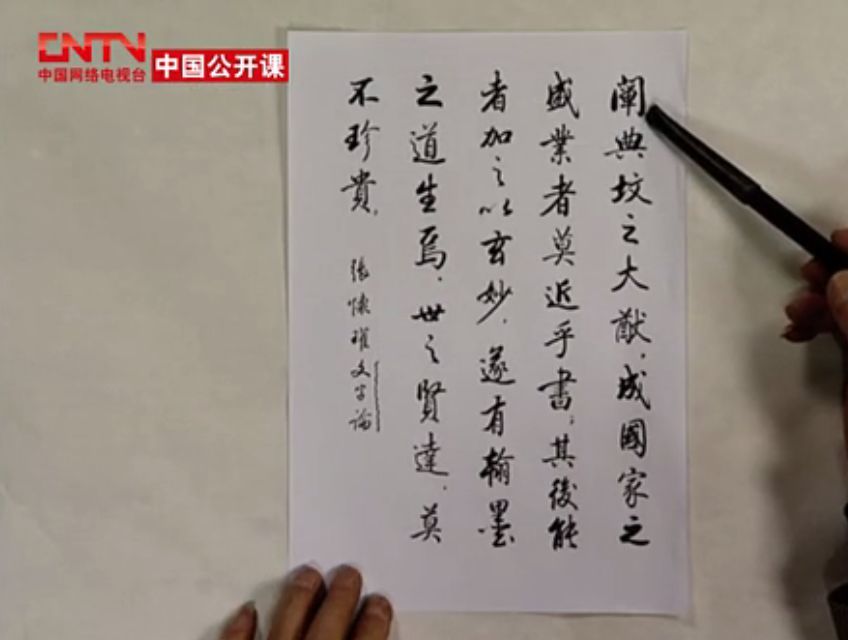 CNTN
中国网络电视台
中国公开课
阐典坟之大猷，成國家之
盛業者莫近乎書，其後能
者加之以玄妙，遂有翰墨
之道生焉，世之賢達，莫
不珍貴，
張懷瓘文字論